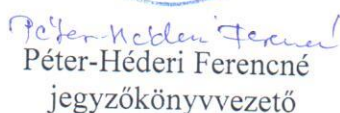 Péter-Héderi Ferencné
Péter-Héderi Ferencné
jegyzőkönyvvezető